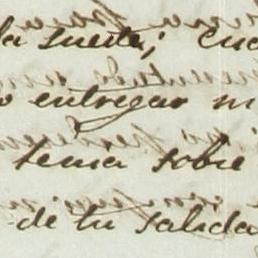 la suerte; Cuá
o entregar m
tema sobre
de tu salida